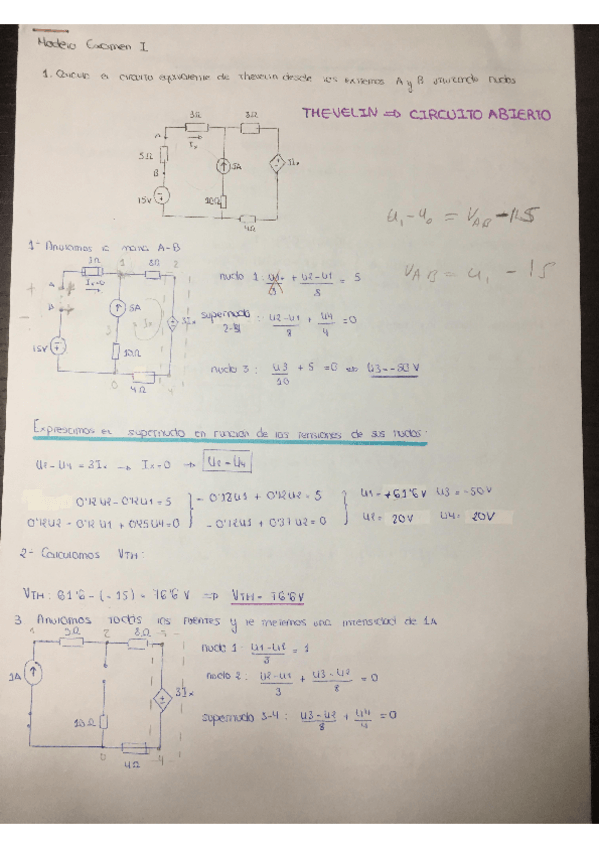 Modelo Examen I
1. Calcule el circuito equivalente de Thevelin desde los extremos A y B marcando nudos
THEVELIN => CIRCUITO ABIERTO
3Ω 8Ω
A Ix
5Ω 5A 3Ix
B 10Ω
15V
4Ω
U1-U0 = VAB-15
VAB = U1 - 15
1- Anulamos la rama A-B
3Ω 1 8Ω 2
+ A Ix=0
- B 5A 3Ix
3
15V 10Ω
0 4Ω 4
nudo 1: U1/3 + U2-U1/8 = 5
supernudo 2-4: U2-U1/8 + U4/4 = 0
nudo 3: U3/10 + 5 = 0 => U3=-50V
Expresamos el supernudo en función de las tensiones de sus nudos:
U2-U4 = 3Ix -> Ix=0 -> U2=U4
0'12U2-0'12U1=5 } -0'12U1+0'12U2=5 } U1=+61'6V U3=-50V
0'12U2-0'12U1+0'25U4=0 } -0'12U1+0'37U2=0 } U2= 20V U4= 20V
2- Calculamos VTH:
VTH: 61'6-(-15) = 76'6V => VTH= 76'6V
3 Anulamos todas las fuentes y le metemos una intensidad de 1A
1 3Ω 2 8Ω 3
1A 3Ix
10Ω
0 4Ω 4
nudo 1: U1-U2/3 = 1
nudo 2: U2-U1/3 + U3-U2/8 = 0
supernudo 3-4: U3-U2/8 + U4/4 = 0